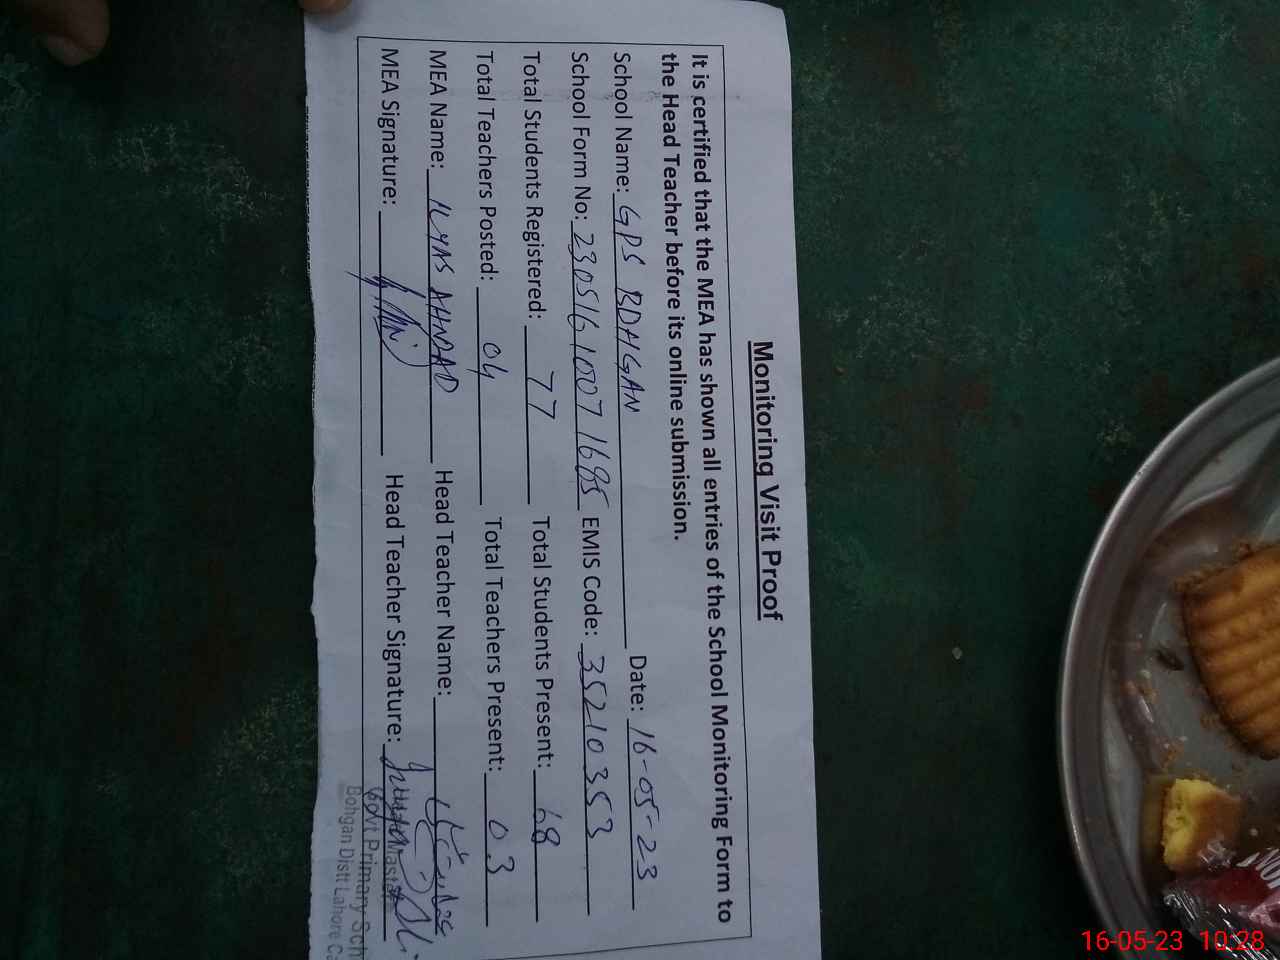 Monitoring Visit Proof
It is certified that the MEA has shown all entries of the School Monitoring Form to
the Head Teacher before its online submission.
School Name: GPS BDHGAN Date: 16-05-23
School Form No: 230516 1007 1685 EMIS Code: 35210353
Total Students Registered: 77 Total Students Present: 68
Total Teachers Posted: 04 Total Teachers Present: 03
MEA Name: ILYAS AHMAD Head Teacher Name:
MEA Signature: Head Teacher Signature:
Master
Govt Primary Sch
Bohgan Distt Lahore Ca
16-05-23 10:28